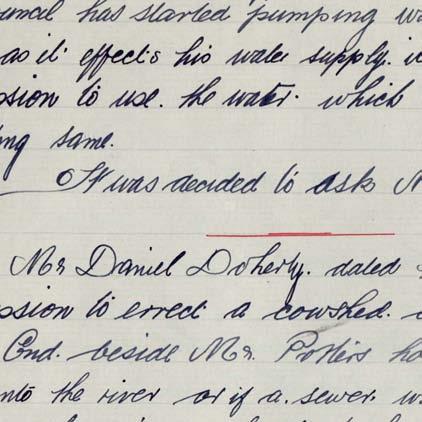 uncil has started pumping wa
as it effects his water supply. i
ssion to use. the water. which
ng same.
It was decided to ask M
Mr Daniel Doherty. dated
ssion to errect a cowshed.
End. beside Mr. Potters ho
nto the river or if a. sewer. w